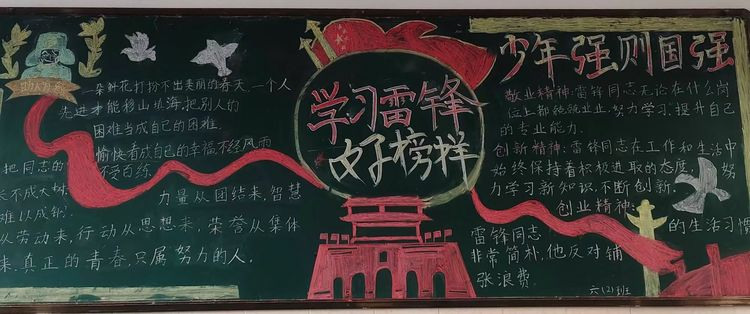 一朵鲜花打扮不出美丽的春天,一个人
先进才能移山填海,把别人的
困难当成自己的困难.
把同志的
愉快看成自己的幸福不经风雨
长不成大树,
不受百练
难以成钢.
力量从团结来,智慧
从劳动来,行动从思想来,荣誉从集体
来.真正的青春,只属 努力的人.
学习雷锋
好榜样
少年强则国强
敬业精神:雷锋同志无论在什么岗
位上都兢兢业业,努力学习,提升自己
的专业能力.
创新精神:雷锋同志在工作和生活中
始终保持着积极进取的态度, 努
力学习新知识,不断创新.
创业精神:
雷锋同志 的生活习惯
非常简朴,他反对铺
张浪费.
六(2)班